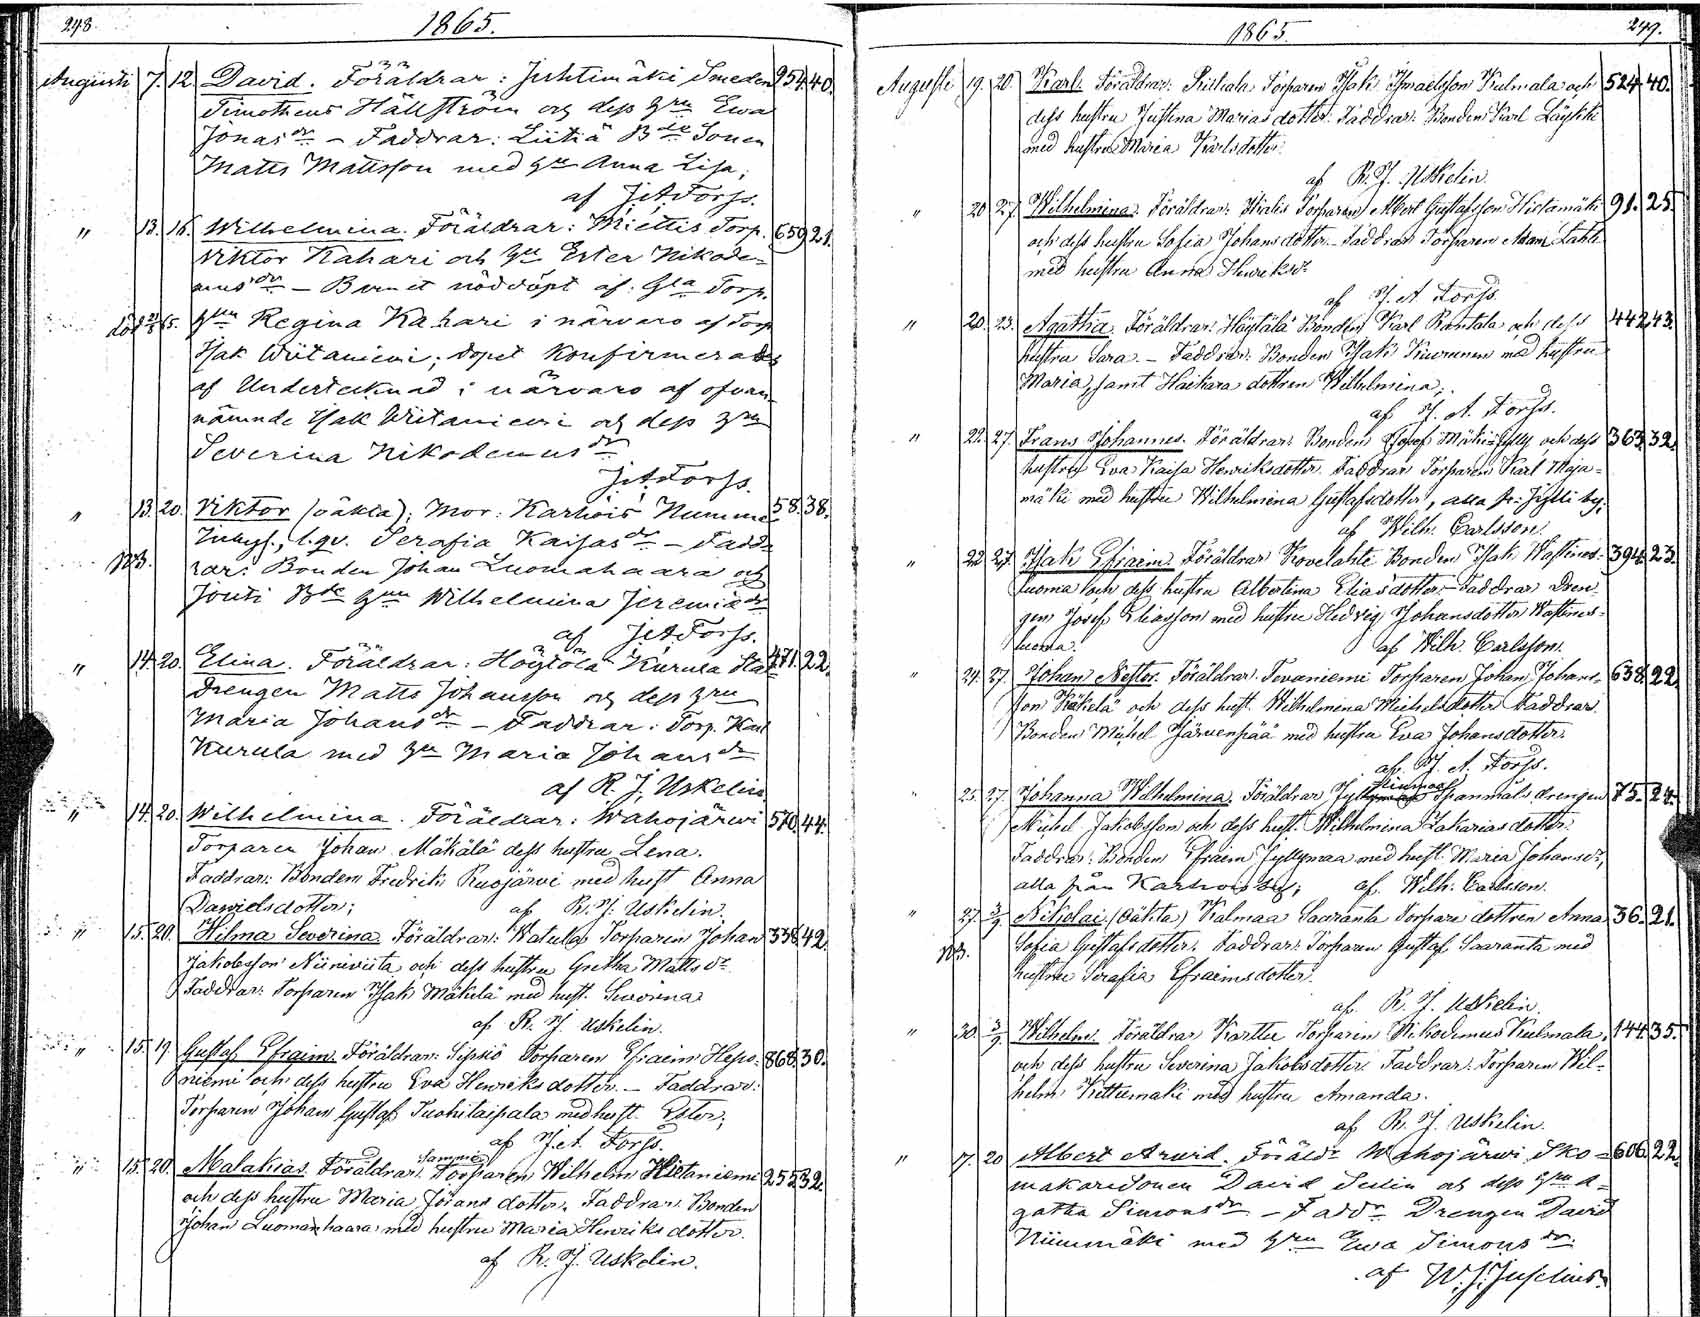 248. 1865.
Augusti 7. 12. David. Föräldrar: Juhtimäki Smeden 954. 40.
Timotheus Hällström och dess hru Ewa
Jonasdr – Faddrar: Liitiä Bde Sonen
Matts Mattsson med hu Anna Lisa;
af J.A. Forss.
" 13. 16. Wilhelmina. Föräldrar: Miettis Torp. 659 21.
Viktor Kahari och hu Ester Nikode-
musdr – Barnet nöddöpt af Gla Torp.
död 21/8 65. hrun Regina Kahari i närvaro af Torp
Isak Wiitaniemi; dopet konfirmerades
af Undertecknad i närvaro af ofvan-
nämnde Isak Wiitaniemi och dess hru
Severina Nikodemusdr
J.A. Forss.
" 13. 20. Viktor (oäkta); Mor: Karhois Numme 58. 38.
NB. Inhys., l.qv. Serafia Kaisasdr – Fadd-
rar: Bonden Johan Luomahaara och
Jouti Bde hru Wilhelmina Jeremiasdr
af J.A. Forss.
" 14. 20. Elina. Föräldrar: Höytölä Kurula Sta 471. 22.
Drengen Matts Johansson och dess hru
Maria Johansdr – Faddrar: Torp. Karl
Kurula med hu Maria Johansdr
af R. J. Uskelin.
" 14. 20. Wilhelmina. Föräldrar: Wahojärwi 570. 44.
Torparen Johan Mäkälä dess hustru Lena.
Faddrar: Bonden Fredrik Ruojärwi med hust Anna
Davidsdotter; af R. J. Uskelin.
" 15. 20. Hilma Severina. Föräldrar: Katula Torparen Johan 338. 42.
Jakobsson Niiniviita och dess hustru Gretha Mattsdr.
Faddrar: Torparen Isak Mäkelä med hust. Severina
af R. J. Uskelin.
" 15. 19. Gustaf Efraim. Föräldrar: Sipsiö Torparen Efraim Hepo- 868. 30.
niemi och dess hustru Eva Henriksdotter. – Faddrar:
Torparen Johan Gustaf Tuohitaipala med hust. Ester;
af J.A. Forss.
" 15. 20. Malakias. Föräldrar: Sammi Torparen Wilhelm Hietaniemi 255 32.
och dess hustru Maria Göransdotter. Faddrar: Bonden
Johan Luomanhaara med hustru Maria Henriksdotter.
af R. J. Uskelin.
1865. 249.
Augusti 19. 20. Karl. Föräldrar: Torparen Isak Ismaelsson Kulmala och 524. 40.
dess hustru Justina Mariasdotter. Faddrar: Bonden Karl Läykki
med hustru Maria Karlsdotter.
af R. J. Uskelin.
" 20 27. Wilhelmina. Föräldrar: Torparen Albert Gustafsson Hietamäki 91. 25.
och dess hustru Sofia Johansdotter. – Faddrar Torparen Adam Lahti
med hustru Anna Henriksdr
af J. A Forss.
" 20. 23. Agatha. Föräldrar: Höytälä Bonden Karl Rantala och dess 442. 43.
hustru Sara. – Faddrar: Bonden Isak Kuvrunen med hustru
Maria, samt Haikara dottren Wilhelmina;
af J. A. Forss.
" 22. 27. Frans Johannes. Föräldrar: Bonden Josef Mäki-Jylli och dess 363. 32.
hustru Eva Kaisa Henriksdotter. Faddrar Torparen Karl Maja-
mäki med hustru Wilhelmina Gustafsdotter, alla fr: Jylli by;
af Wilh. Carlsson.
" 22. 27. Isak Efraim. Föräldrar Kovelahti Bonden Isak Wastines- 394. 23.
luoma och dess hustru Albertina Eliasdotter – Faddrar Dren-
gen Josef Eliasson med hustru Hedvig Johansdotter Wastines-
luoma. af Wilh. Carlsson.
" 24. 27. Johan Nestor. Föräldrar: Tevaniemi Torparen Johan Johans- 638. 22.
son Käkelä och dess hust. Wilhelmina Michelsdotter. Faddrar.
Bonden Michel Järvenpää med hustru Eva Johansdotter.
af J. A. Forss.
" 25. 27. Johanna Wilhelmina. Föräldrar Spanmåls drengen 75. 24.
Michel Jakobsson och dess hust. Wilhelmina Zakariasdotter.
Faddrar: Bonden Efraim Jyllymaa med hust. Maria Johansdr,
alla från Karhois by; af. Wilh. Carlsson.
" 27. 3/9. Nikolai. (Oäkta) Kalmaa Saaranta Torpare dottren Anna 36. 21.
NB. Sofia Gustafsdotter. Faddrar: Torparen Gustaf Saaranta med
hustru Serafia Efraimsdotter.
af R. J. Uskelin.
" 30. 3/9. Wilhelm. Föräldrar Karttu Torparen Nikodemus Kulmala, 144. 35.
och dess hustru Severina Jakobsdotter. Faddrar: Torparen Wil-
helm Kettumäki med hustru Amanda.
af R. J. Uskelin.
" 17. 20 Albert Arvid. Föräldr Wahojärwi Sko- 606. 22.
makaresonen David Sulin och dess hru A-
gatha Simonsdr – Faddr Drengen David
Niinimäki med hru Ewa Simonsdr.
af W. J. Juselius.